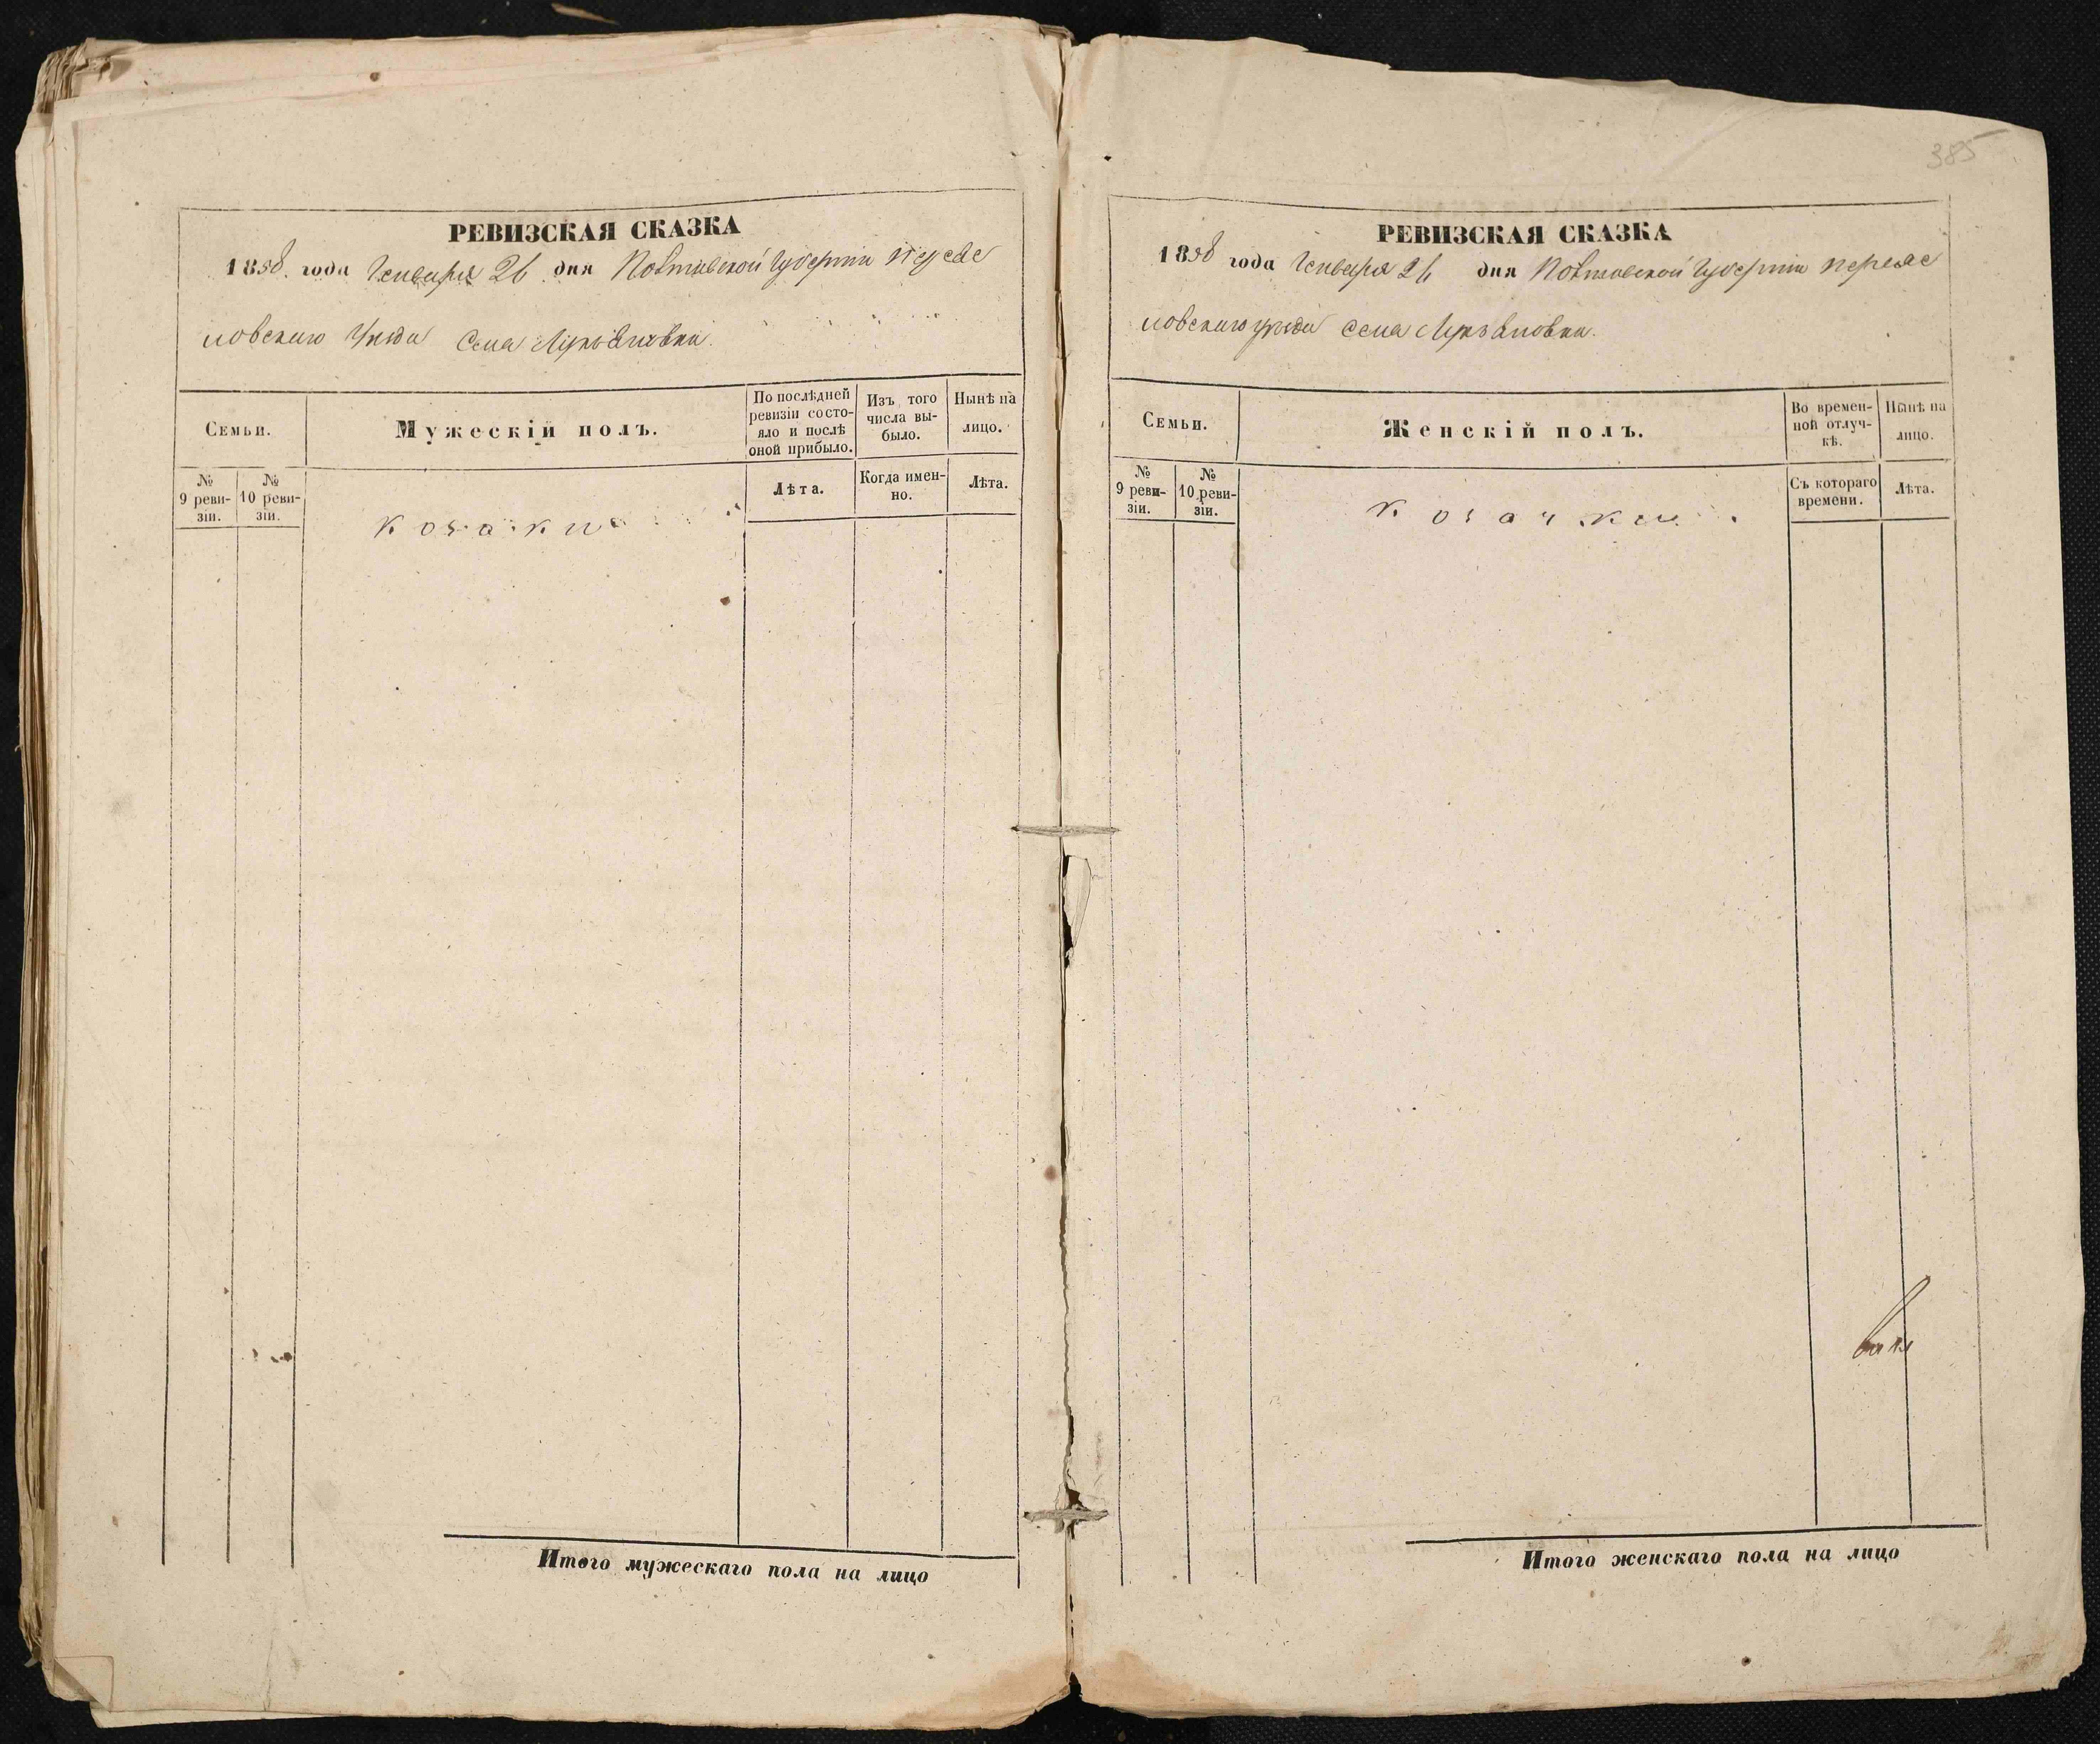 385
РЕВИЗСКАЯ СКАЗКА
1858. года Генваря 26 дня Полтавской Губернии Переяс
ловскаго Уезда Села Лукъяновки.
Семьи.
Мужескій полъ.
По послѣдней ревизіи состо-
яло и послѣ оной прибыло.
Изъ того числа вы-
было.
Нынѣ на лицо.
№ 9 реви-
зіи.
№ 10 реви-
зіи.
Лѣта.
Когда имен-
но.
Лѣта.
козаки
Итого мужескаго пола на лицо
РЕВИЗСКАЯ СКАЗКА
1858 года Генваря 26 дня Полтавской Губернии Переяс
ловскаго уезда Села Лукъяновки.
Семьи.
Женскій полъ.
Во времен-
ной отлуч-
кѣ.
Нынѣ на лицо.
№ 9 реви-
зіи.
№ 10 реви-
зіи.
Съ котораго времени.
Лѣта.
козачки
Итого женскаго пола на лицо